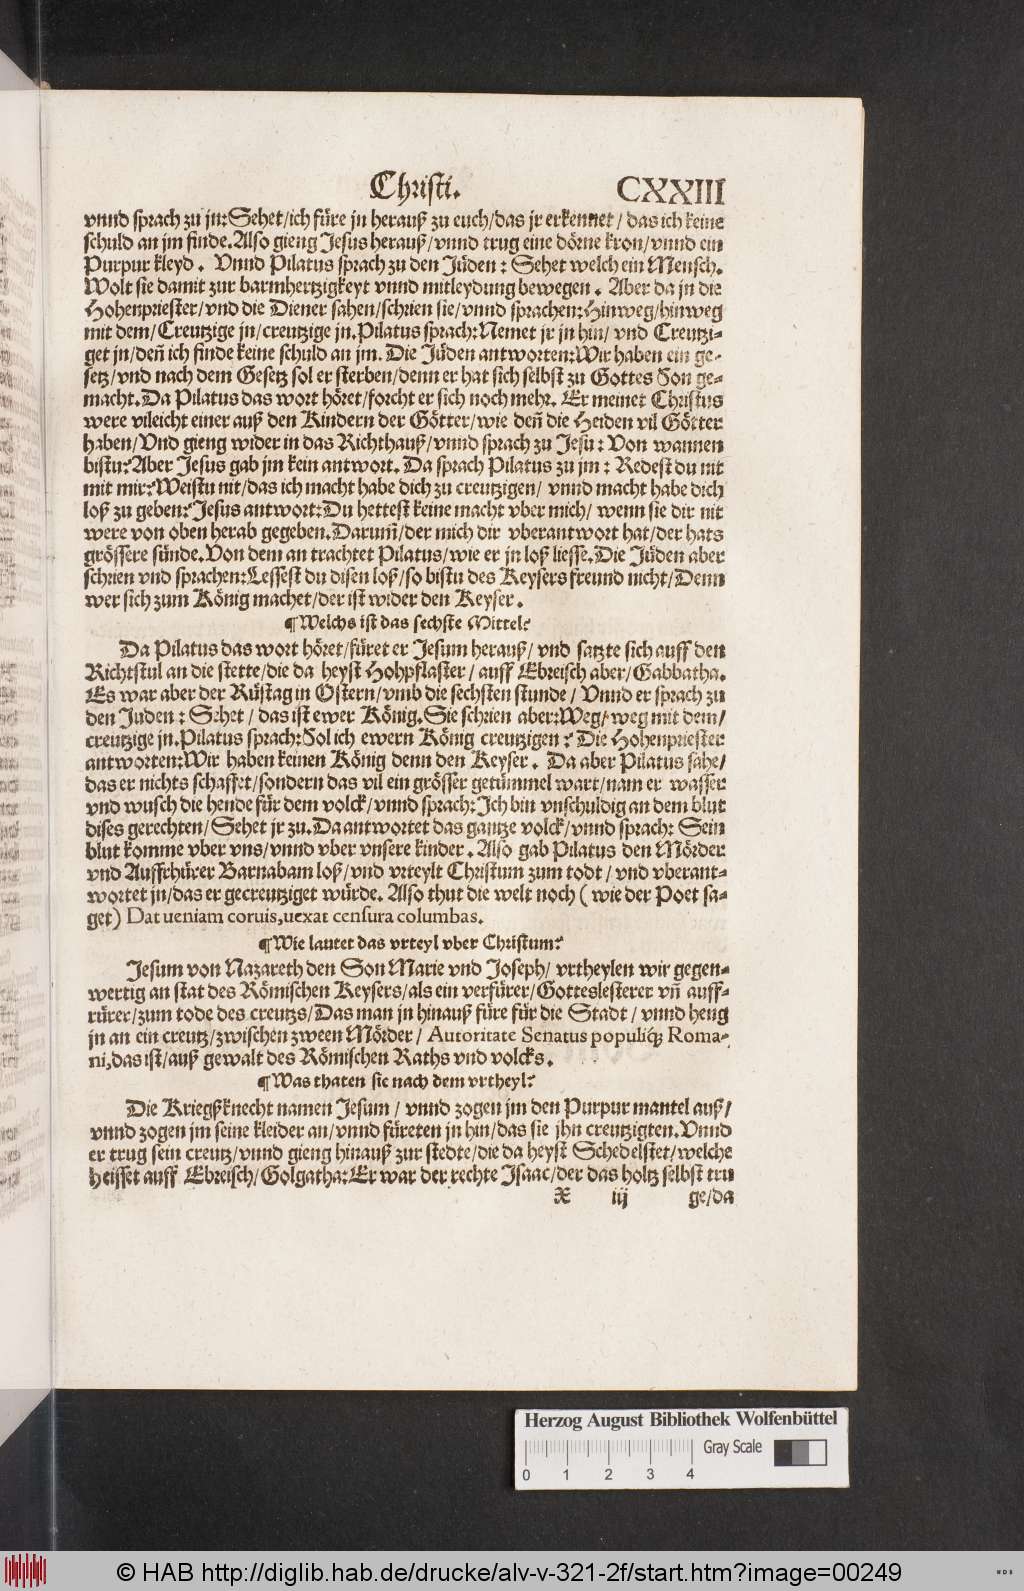 Christi. CXXIII
vnnd sprach zu jn:Sehet/ich füre jn herauß zu euch/das jr erkennet / das ich keine
schuld an jm finde.Also gieng Jesus herauß/vnnd trug eine dörne kron/vnnd ein
Purpur kleyd . Vnnd Pilatus sprach zu den Jüden : Sehet welch ein Mensch.
Wolt sie damit zur barmhertzigkeyt vnnd mitleydung bewegen . Aber da jn die
Hohenpriester/vnd die Diener sahen/schrien sie/vnnd sprachen:Hinweg/hinweg
mit dem/Creutzige jn/creutzige jn.Pilatus sprach:Nemet jr jn hin/ vnd Creutzi-
get jn/deñ ich finde keine schuld an jm. Die Jüden antworten:Wir haben ein ge-
setz/vnd nach dem Gesetz sol er sterben/denn er hat sich selbst zu Gottes Son ge-
macht.Da Pilatus das wort höret/forcht er sich noch mehr. Er meinet Christus
were vileicht einer auß den Kindern der Götter/wie deñ die Heiden vil Götter
haben/Vnd gieng wider in das Richthauß/vnnd sprach zu Jesu : Von wannen
bistu?Aber Jesus gab jm kein antwort.Da sprach Pilatus zu jm : Redest du nit
mit mir?Weistu nit/das ich macht habe dich zu creutzigen/ vnnd macht habe dich
loß zu geben?Jesus antwort:Du hettest keine macht vber mich/ wenn sie dir nit
were von oben herab gegeben.Darum̃/der mich dir vberantwort hat/der hats
grössere sünde.Von dem an trachtet Pilatus/wie er jn loß liesse.Die Jüden aber
schrien vnd sprachen:Lessest du disen loß/so bistu des Keysers freund nicht/Denn
wer sich zum König machet/der ist wider den Keyser .
¶Welchs ist das sechste Mittel?
Da Pilatus das wort höret/füret er Jesum herauß/ vnd satzte sich auff den
Richtstul an die stette/die da heyst Hohpflaster / auff Ebreisch aber/Gabbatha.
Es war aber der Rüstag in Ostern/vmb die sechsten stunde / Vnnd er sprach zu
den Juden : Sehet / das ist ewer König.Sie schrien aber:Weg/weg mit dem/
creutzige jn.Pilatus sprach:Sol ich ewern König creutzigen ? Die Hohenpriester
antworten:Wir haben keinen König denn den Keyser . Da aber Pilatus sahe/
das er nichts schaffet/sondern das vil ein grösser getümmel wart/nam er wasser
vnd wusch die hende für dem volck/vnnd sprach:Ich bin vnschuldig an dem blut
dises gerechten/Sehet jr zu.Da antwortet das gantze volck/vnnd sprach: Sein
blut komme vber vns/vnnd vber vnsere kinder . Also gab Pilatus den Mörder
vnd Auffrhürer Barnabam loß/vnd vrteylt Christum zum todt / vnd vberant-
wortet jn/das er gecreutziget würde. Also thut die welt noch ( wie der Poet sa-
get) Dat ueniam coruis,uexat censura columbas.
¶Wie lautet das vrteyl vber Christum?
Jesum von Nazareth den Son Marie vnd Joseph/ vrtheylen wir gegen-
wertig an stat des Römischen Keysers/als ein verfürer/Gotteslesterer vñ auff-
rürer/zum tode des creutzs/Das man jn hinauß füre für die Stadt / vnnd heng
jn an ein creutz/zwischen zween Mörder / Autoritate Senatus populiq́; Roma-
ni,das ist/auß gewalt des Römischen Raths vnd volcks .
¶Was thaten sie nach dem vrtheyl?
Die Kriegßknecht namen Jesum / vnnd zogen jm den Purpur mantel auß/
vnnd zogen jm seine kleider an/vnnd füreten jn hin/das sie jhn creutzigten.Vnnd
er trug sein creutz/vnnd gieng hinauß zur stedte/die da heyst Schedelstet/welche
heisset auff Ebreisch/Golgatha:Er war der rechte Isaac/der das holtz selbst tru
X iij ge/da
Herzog August Bibliothek Wolfenbüttel
Gray Scale
0 1 2 3 4
© HAB http://diglib.hab.de/drucke/alv-v-321-2f/start.htm?image=00249